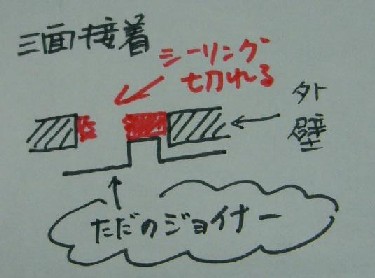 三面接着
シーリング
切れる
外
壁
ただのジョイナー